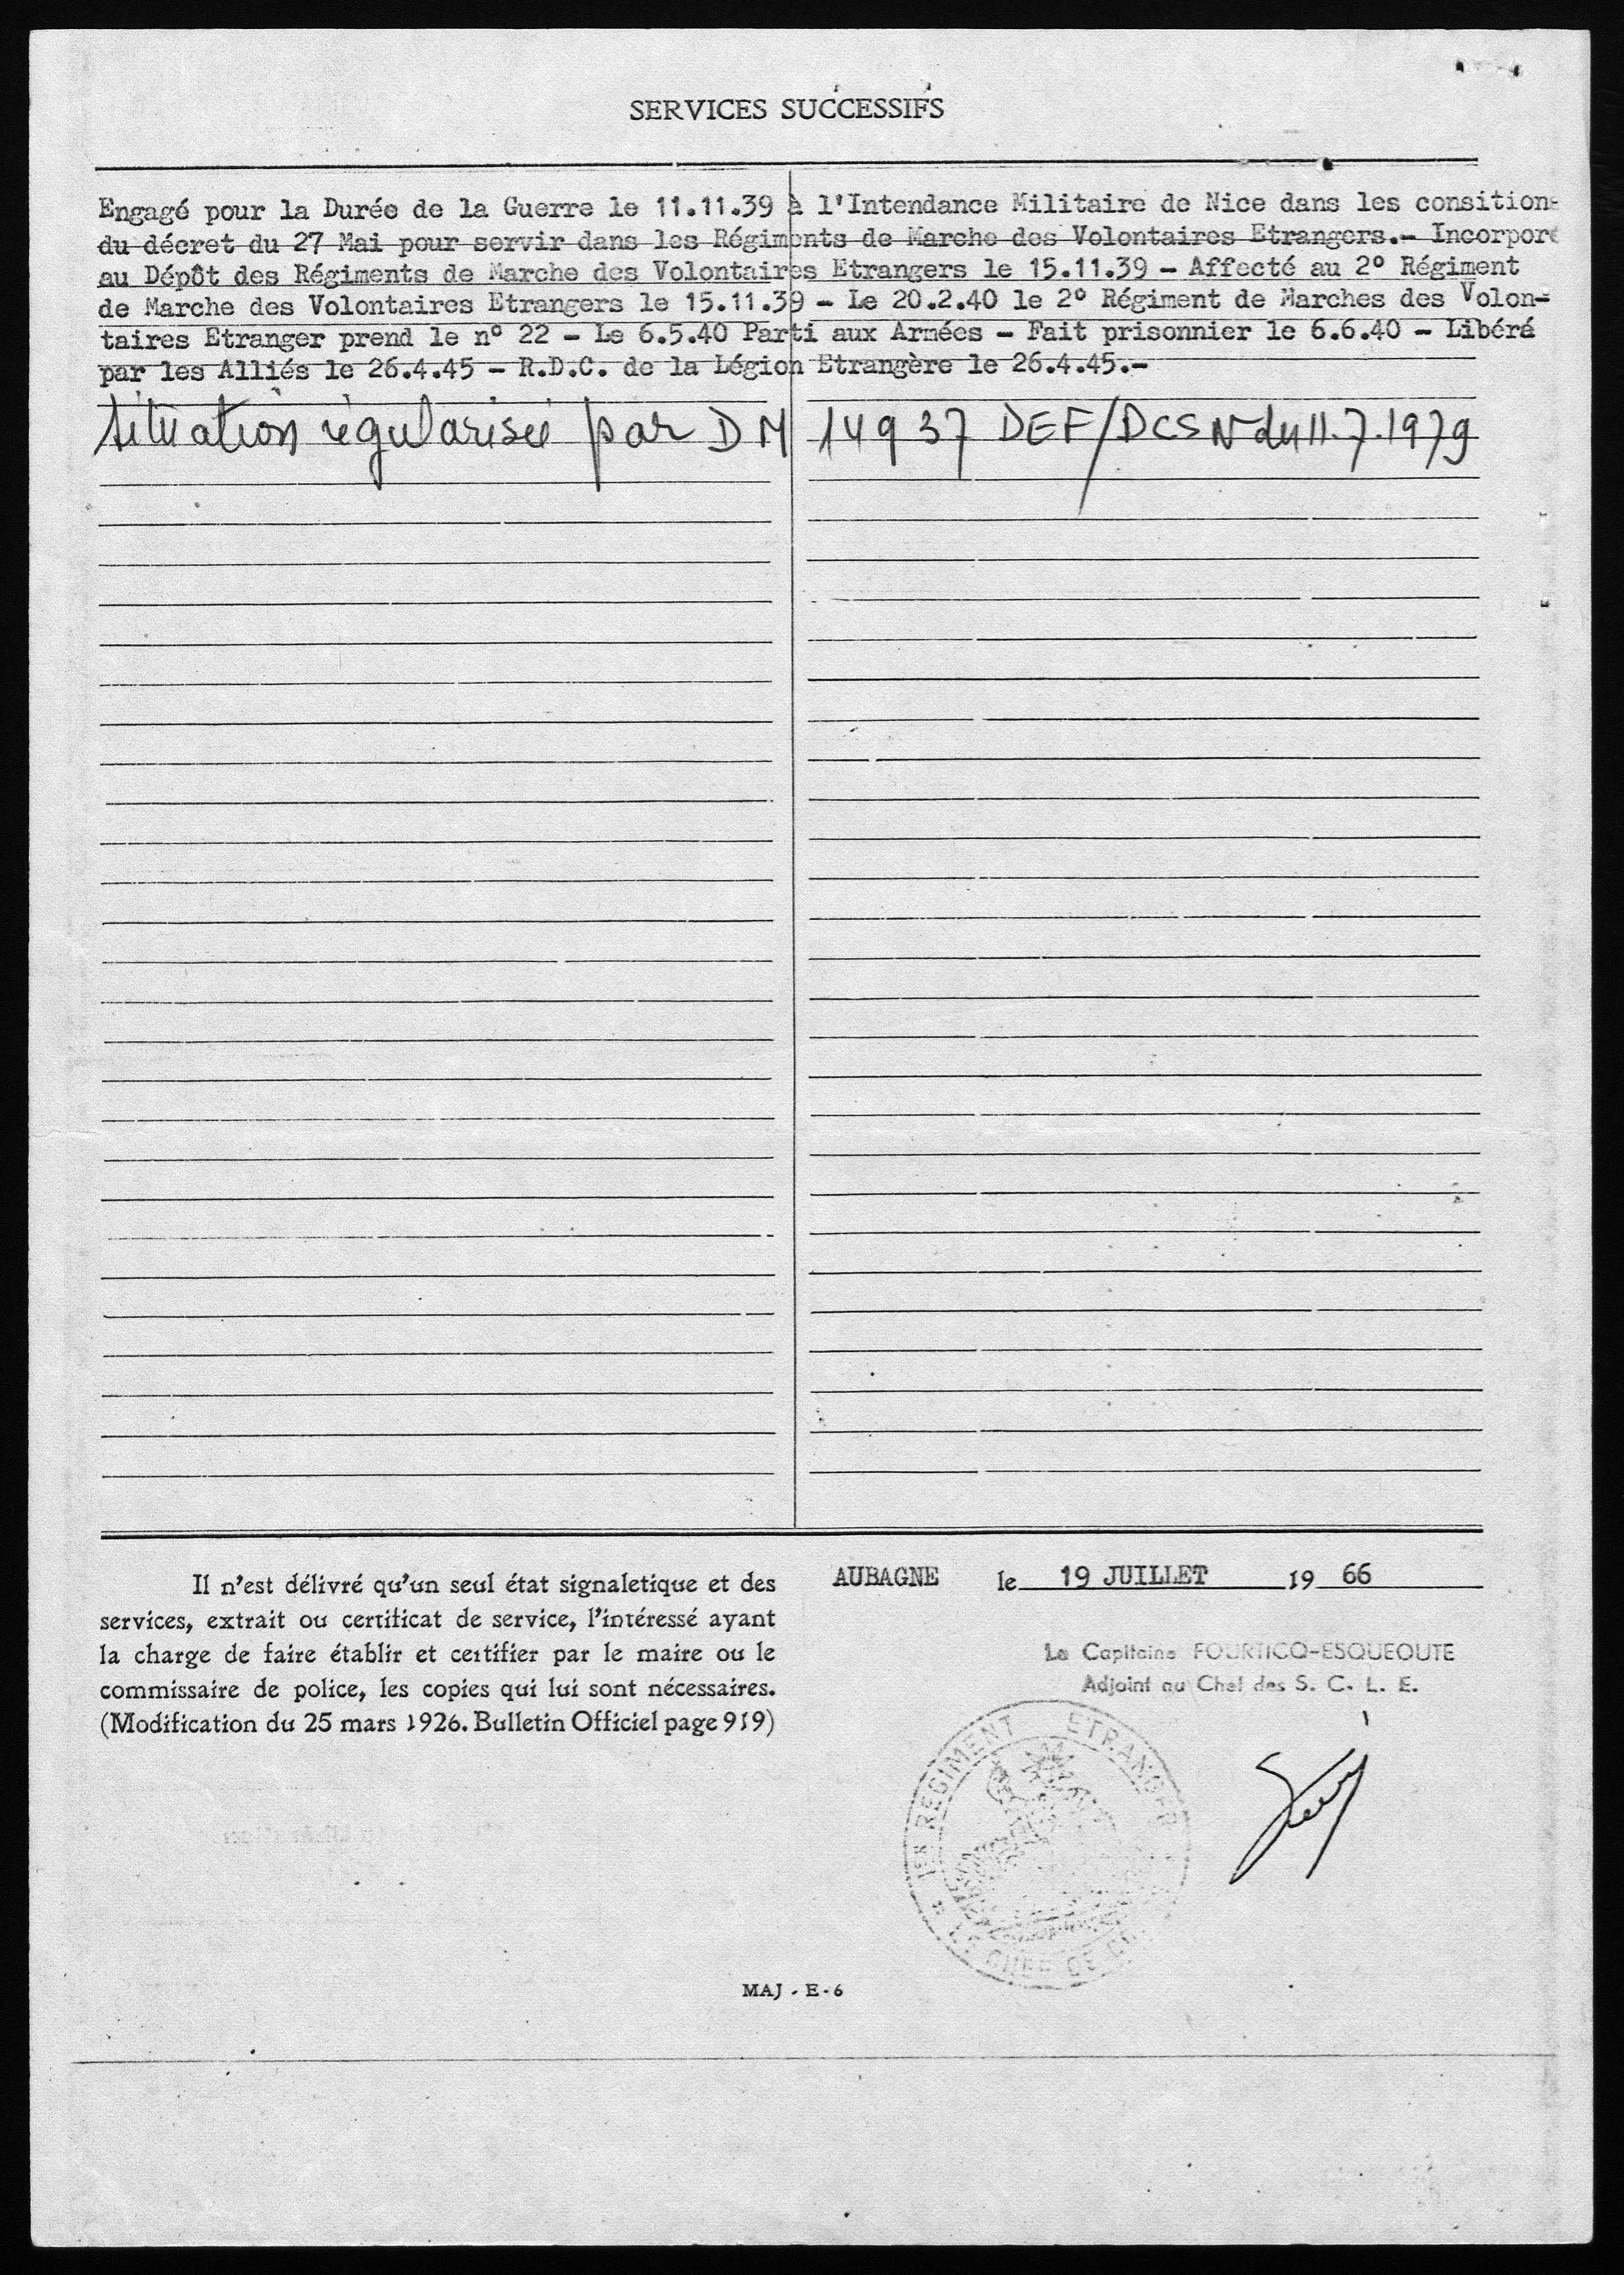 SERVICES SUCCESSIFS
Engagé pour la Durée de la Guerre le 11.11.39 à l'Intendance Militaire de Nice dans les consitions
du décret du 27 Mai pour servir dans les Régiments de Marche des Volontaires Etrangers.- Incorporé
au Dépôt des Régiments de Marche des Volontaires Etrangers le 15.11.39 - Affecté au 2° Régiment
de Marche des Volontaires Etrangers le 15.11.39 - Le 20.2.40 le 2° Régiment de Marches des Volon-
taires Etranger prend le n° 22 - Le 6.5.40 Parti aux Armées - Fait prisonnier le 6.6.40 - Libéré
par les Alliés le 26.4.45 - R.D.C. de la Légion Etrangère le 26.4.45.-
situation régularisée par DM 14937 DEF/DCSN du 11.7.1979
Il n'est délivré qu'un seul état signaletique et des
services, extrait ou certificat de service, l'intéressé ayant
la charge de faire établir et certifier par le maire ou le
commissaire de police, les copies qui lui sont nécessaires.
(Modification du 25 mars 1926. Bulletin Officiel page 919)
AUBAGNE le 19 JUILLET 19 66
Le Capitaine FOURTICQ-ESQUEOUTE
Adjoint au Chef des S. C. L. E.
1ER REGIMENT ETRANGER
MAJ - E - 6